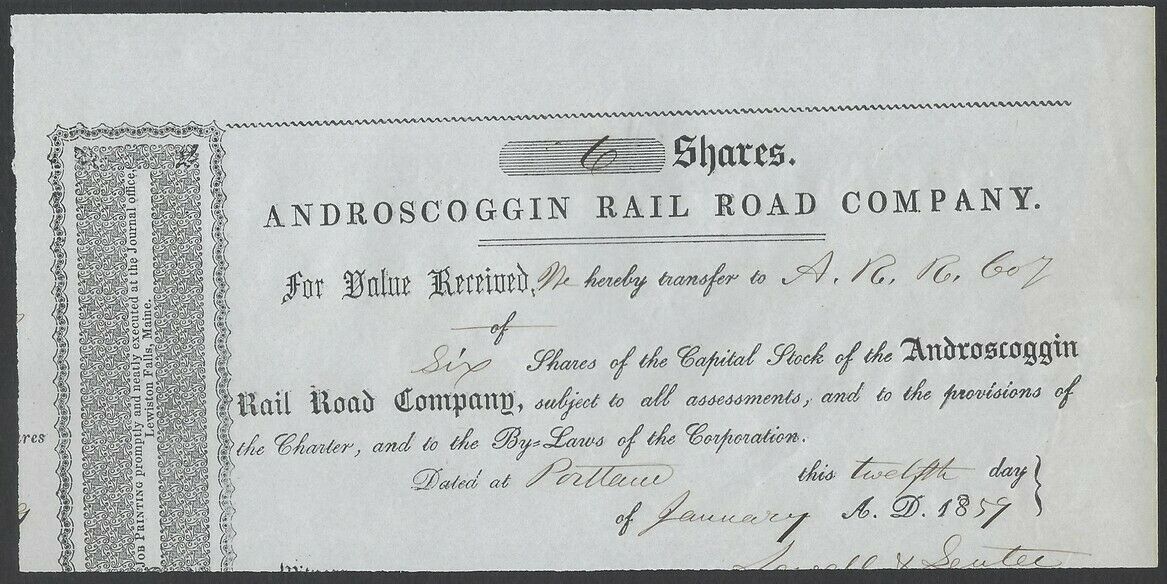 6 Shares.
ANDROSCOGGIN RAIL ROAD COMPANY.
For Value Received, We hereby transfer to A. R. R. Coy
of
Six Shares of the Capital Stock of the Androscoggin
Rail Road Company, subject to all assessments, and to the provisions of
the Charter, and to the By-Laws of the Corporation.
Dated at Portland this twelfth day
of January A. D. 1859
Lowell & Senter
JOB PRINTING promptly and neatly executed at the Journal office,
Lewiston Falls, Maine.
ares